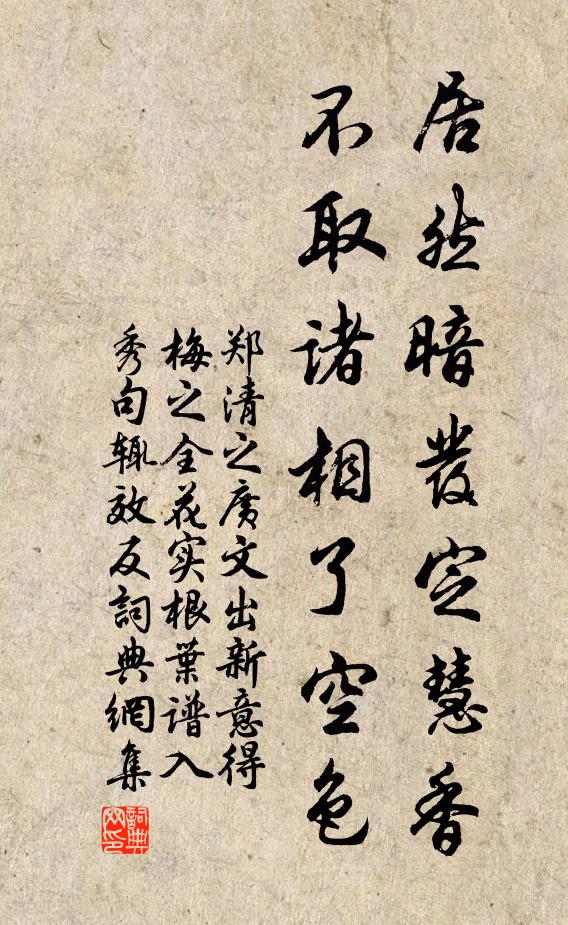 居然暗發定慧香
不取諸相了空色
郑清之廣文出新意得
梅之全花实根葉谱入
秀句辄效反詞典網集
詞典
网印